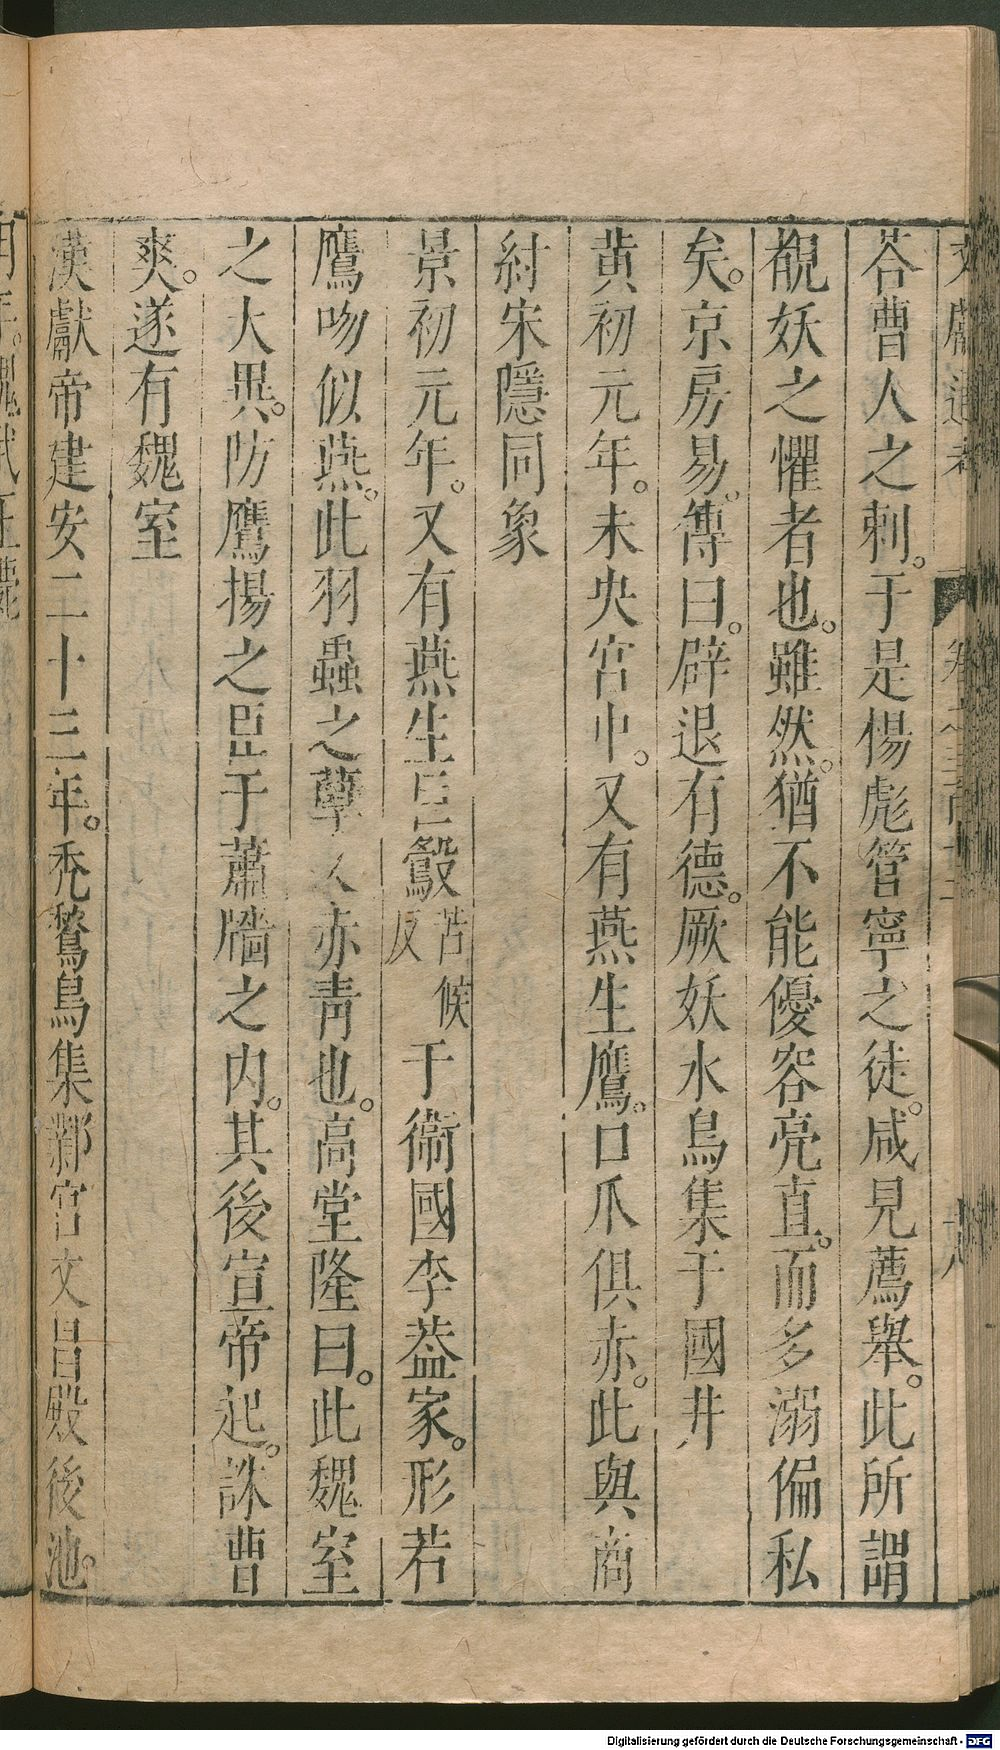 荅曹人之刺。于是楊彪管寧之徒。咸見薦舉。此所謂
覩妖之懼者也。雖然。猶不能優容亮直。而多溺偏私
矣。京房易。傳曰。辟退有德。厥妖水鳥集于國井
黄初元年。未央宮中。又有燕生鷹。口爪俱赤。此與商
紂宋隱同象
景初元年。又有燕生巨鷇苦候反于衞國李葢家。形若
鷹吻似燕。此羽蟲之孽又赤青也。高堂隆曰。此魏室
之大異。防鷹揚之臣于蕭牆之内。其後宣帝起。誅曹
爽。遂有魏室
漢獻帝建安二十三年。禿鶖鳥集鄴宮文昌殿後池。
Digitalisierung gefördert durch die Deutsche Forschungsgemeinschaft - DFG